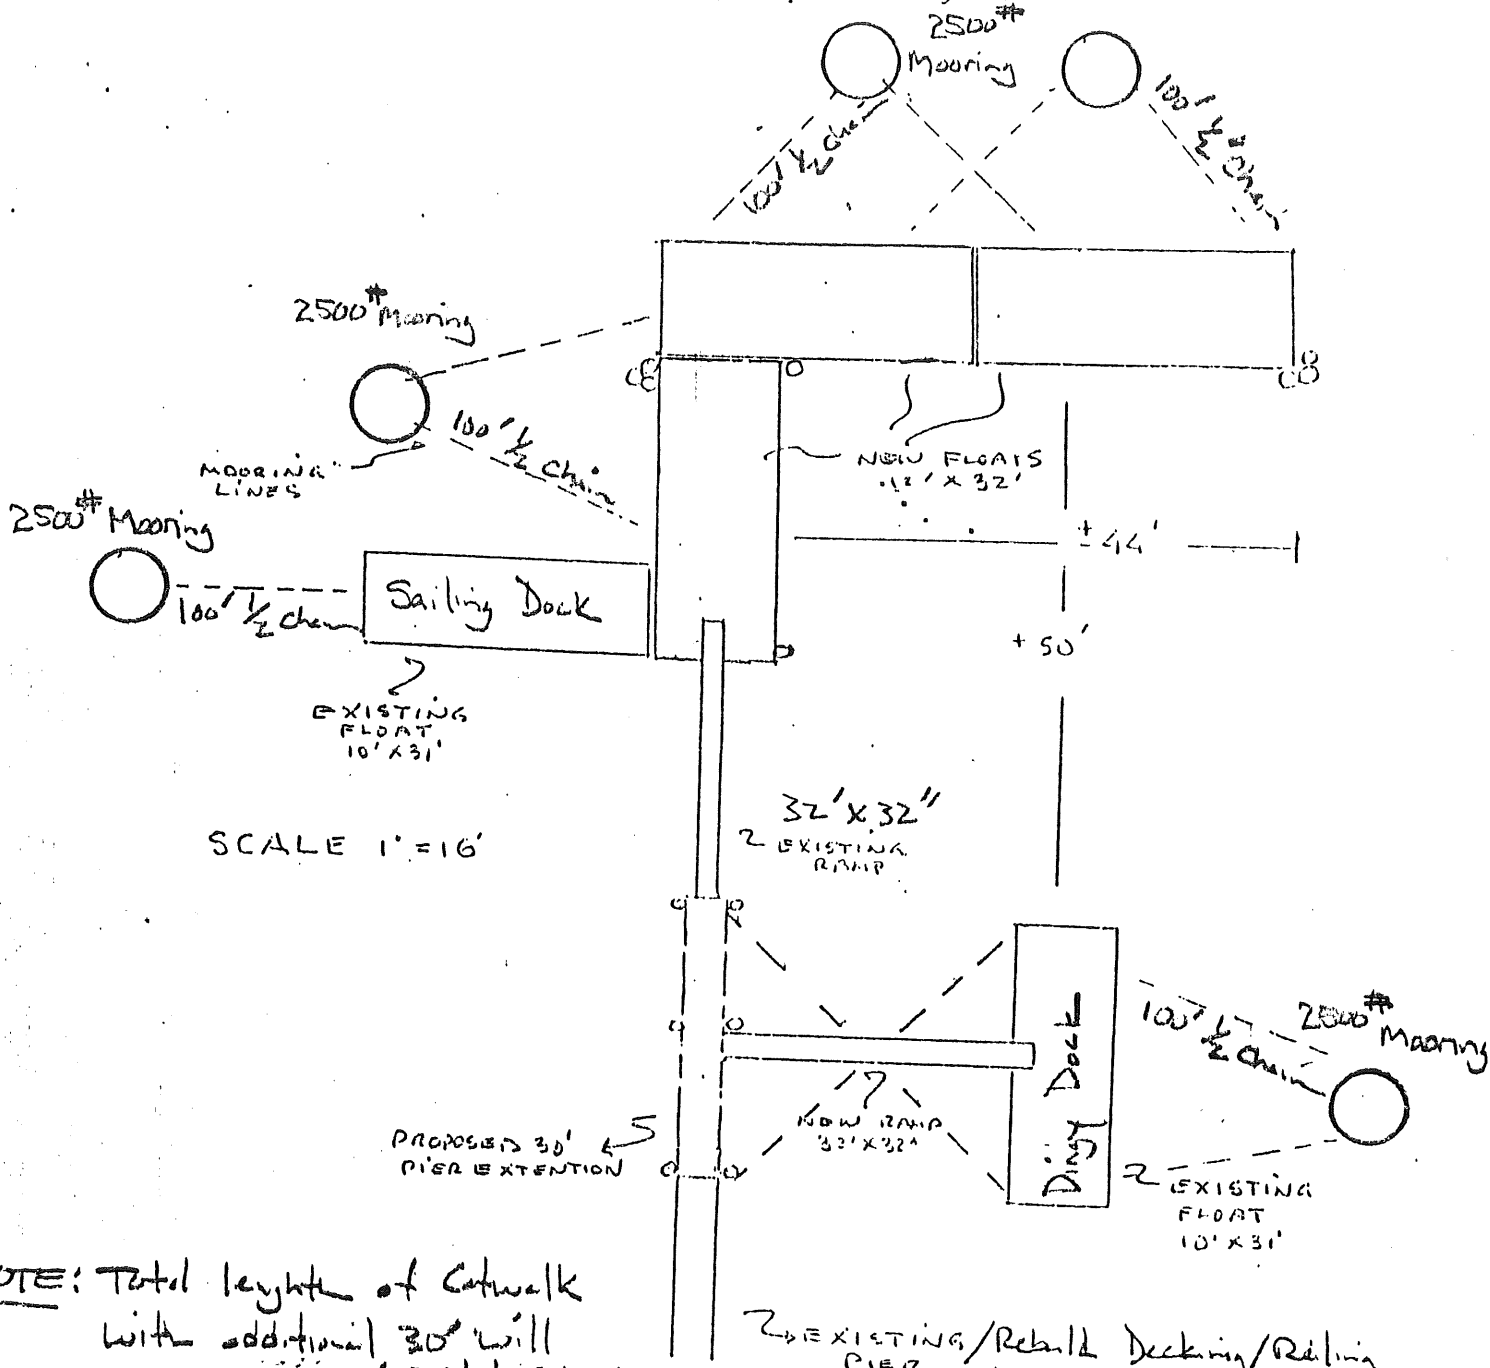 2500#
Mooring
100' 1/2 chain
100' 1/2" Chain
2500# Mooring
100' 1/2 Chain
MOORING
LINES
NEW FLOATS
12' X 32'
2500# Mooring
± 44'
100' 1/2 chain
Sailing Dock
+ 50'
EXISTING
FLOAT
10' X 31'
32' X 32"
EXISTING
RAMP
SCALE 1" = 16'
100' 1/2 Chain
2500#
Mooring
Dingy Dock
NEW RAMP
32' X 32"
PROPOSED 30'
PIER EXTENTION
EXISTING
FLOAT
10' X 31'
OTE: Total lenghth of Catwalk
with additional 30' will
EXISTING/Rebuild Decking/Railing
PIER